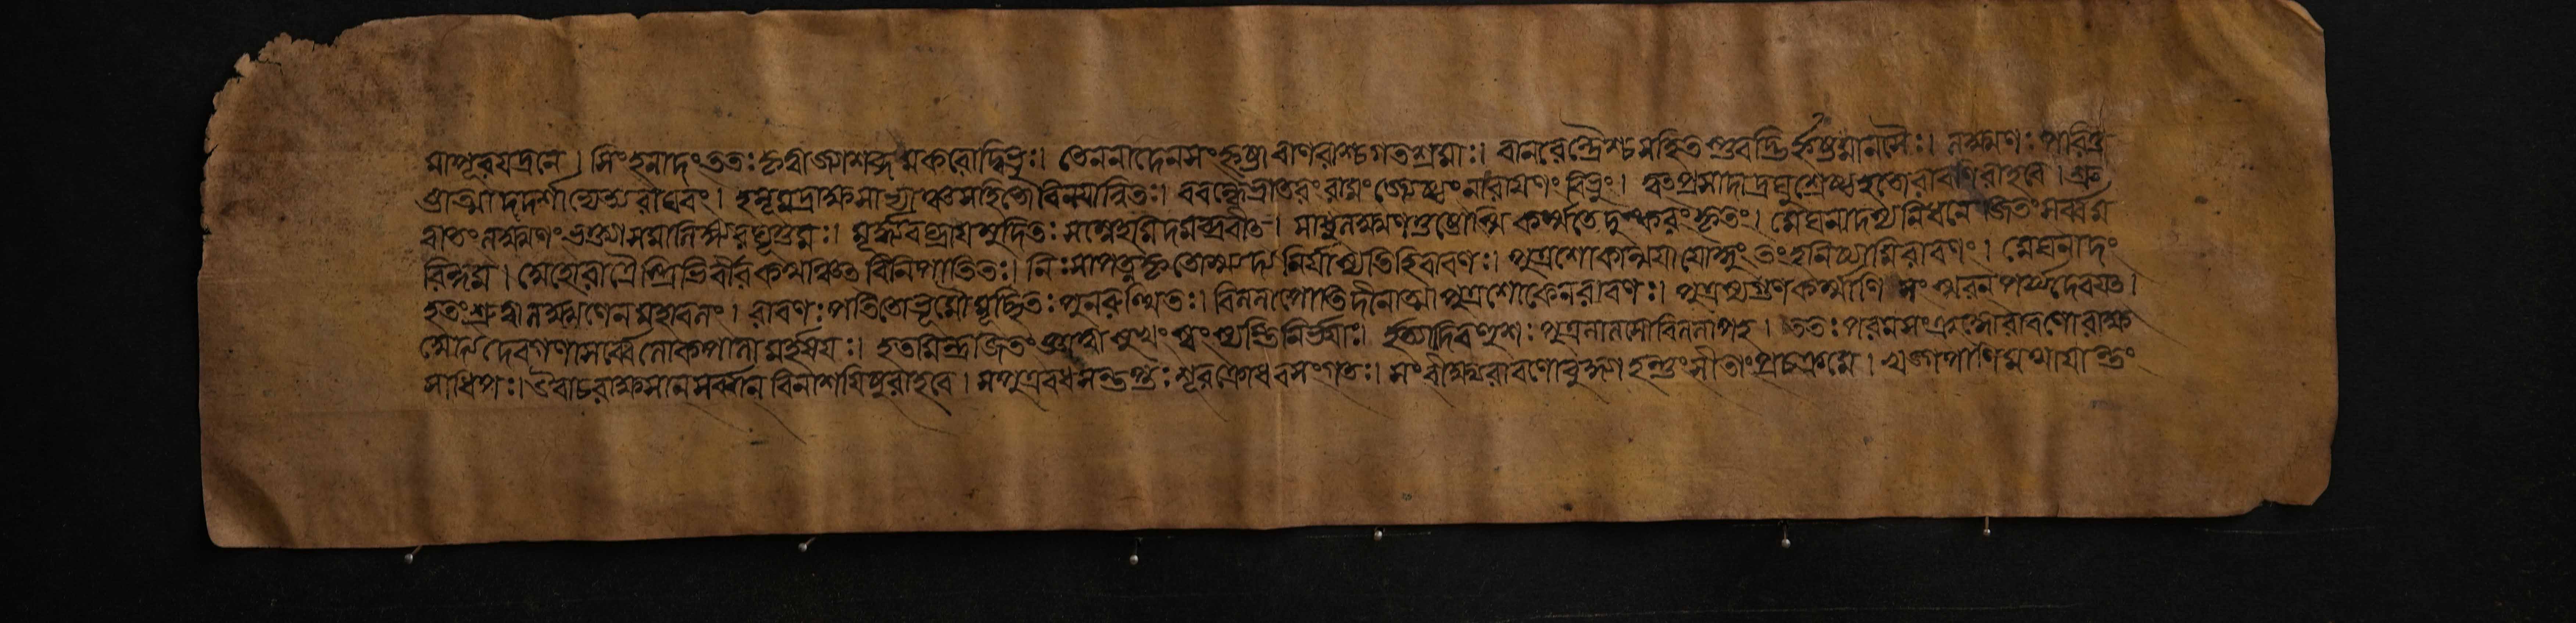 মাপূরযদ্রনে। সিংহনাদং ততঃ কৃত্বা জ্যাশব্দমকরোদ্বিভুঃ। তেননাদেনসংহৃষ্টা বাণরাশ্চগতশ্রমাঃ। বানরেন্দ্রৈশ্চসহিত স্তুবদ্ভির্হৃষ্টমানসৈঃ। লক্ষ্মণঃ পরিতু
ষ্টাত্মাদদর্শাভ্যেত্যরাঘবং। হনূমদ্রাক্ষসাভ্যাঞ্চসহিতোবিনয়ান্বিতঃ। ববন্দেভ্রাতরং রামং জ্যেষ্ঠং নারায়ণং বিভুং। ত্বৎপ্রসাদাদ্রঘুশ্রেষ্ঠহতোরাবণিরাহবে। শ্রু
ত্বাতং লক্ষ্মণং ভক্ত্যা সমালিঙ্গ্যরঘূত্তমঃ। মূর্দ্ধ্ন্যবঘ্রায়মুদিতঃ সস্নেহমিদমব্রবীৎ। সাধুলক্ষ্মণতুষ্টোস্মি কর্ম্মতে দুষ্করং কৃতং। মেঘনাদস্য নিধনে জিতং সর্ব্বম
রিন্দম। অহোরাত্রৈস্ত্রিভির্বীর কথঞ্চিৎ বিনিপাতিতঃ। নিঃসাপত্নকৃতোস্ম্যদ্য নির্যাস্যতিহিরাবণঃ। পুত্রশোকান্ময়া যোদ্ধুং তং হনিষ্যামিরাবণং। মেঘনাদং
হতং শ্রুত্বালক্ষ্মণেনমহাবলং। রাবণঃ পতিতোভূমৌমূর্চ্ছিতঃ পুনরুত্থিতঃ। বিললাপাতিদীনাত্মাপুত্রশোকেনরাবণঃ। পুত্রস্যগুণকর্ম্মাণি সংস্মরন পর্য্যদেবয়ৎ।
অদ্য দেবগণাসর্ব্বেলোকপালামহর্ষয়ঃ। হতমিন্দ্রজিতং জ্ঞাত্বাসুখং স্বপ্স্যন্তিনির্ভয়াঃ। ইত্যাদিবহুশঃ পুত্রলালসোবিললাপহ। ততঃ পরমসংক্রুদ্ধোরাবণোরাক্ষ
সাধিপঃ। উবাচরাক্ষসান সর্ব্বান বিনাশয়িষুরাহবে। সপুত্রবধসন্তপ্তঃ শূরক্রোধবসংগতঃ। সংবীক্ষ্যরাবণোবুদ্ধ্যা হন্তুং সীতাং প্রচক্রমে। খড়্গপাণিমথায়ান্তং